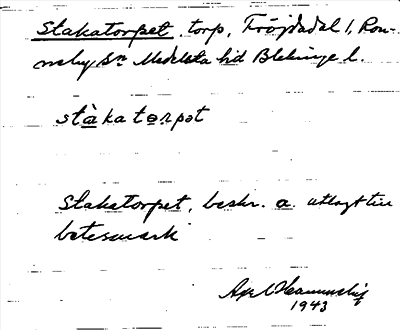 Stakatorpet, torp, Fröjdadal 1, Ron-
neby Sn Medelsta hd Blekinge l.
stàkatorpət
Stakatorpet, beskr. a. utlagt till
betesmark
Axel
1943